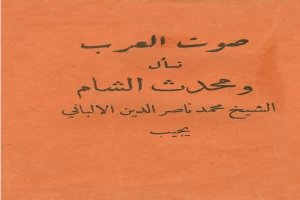 صوت العرب
تسأل
ومحدث الشام
الشيخ محمد ناصر الدين الالباني
يجيب